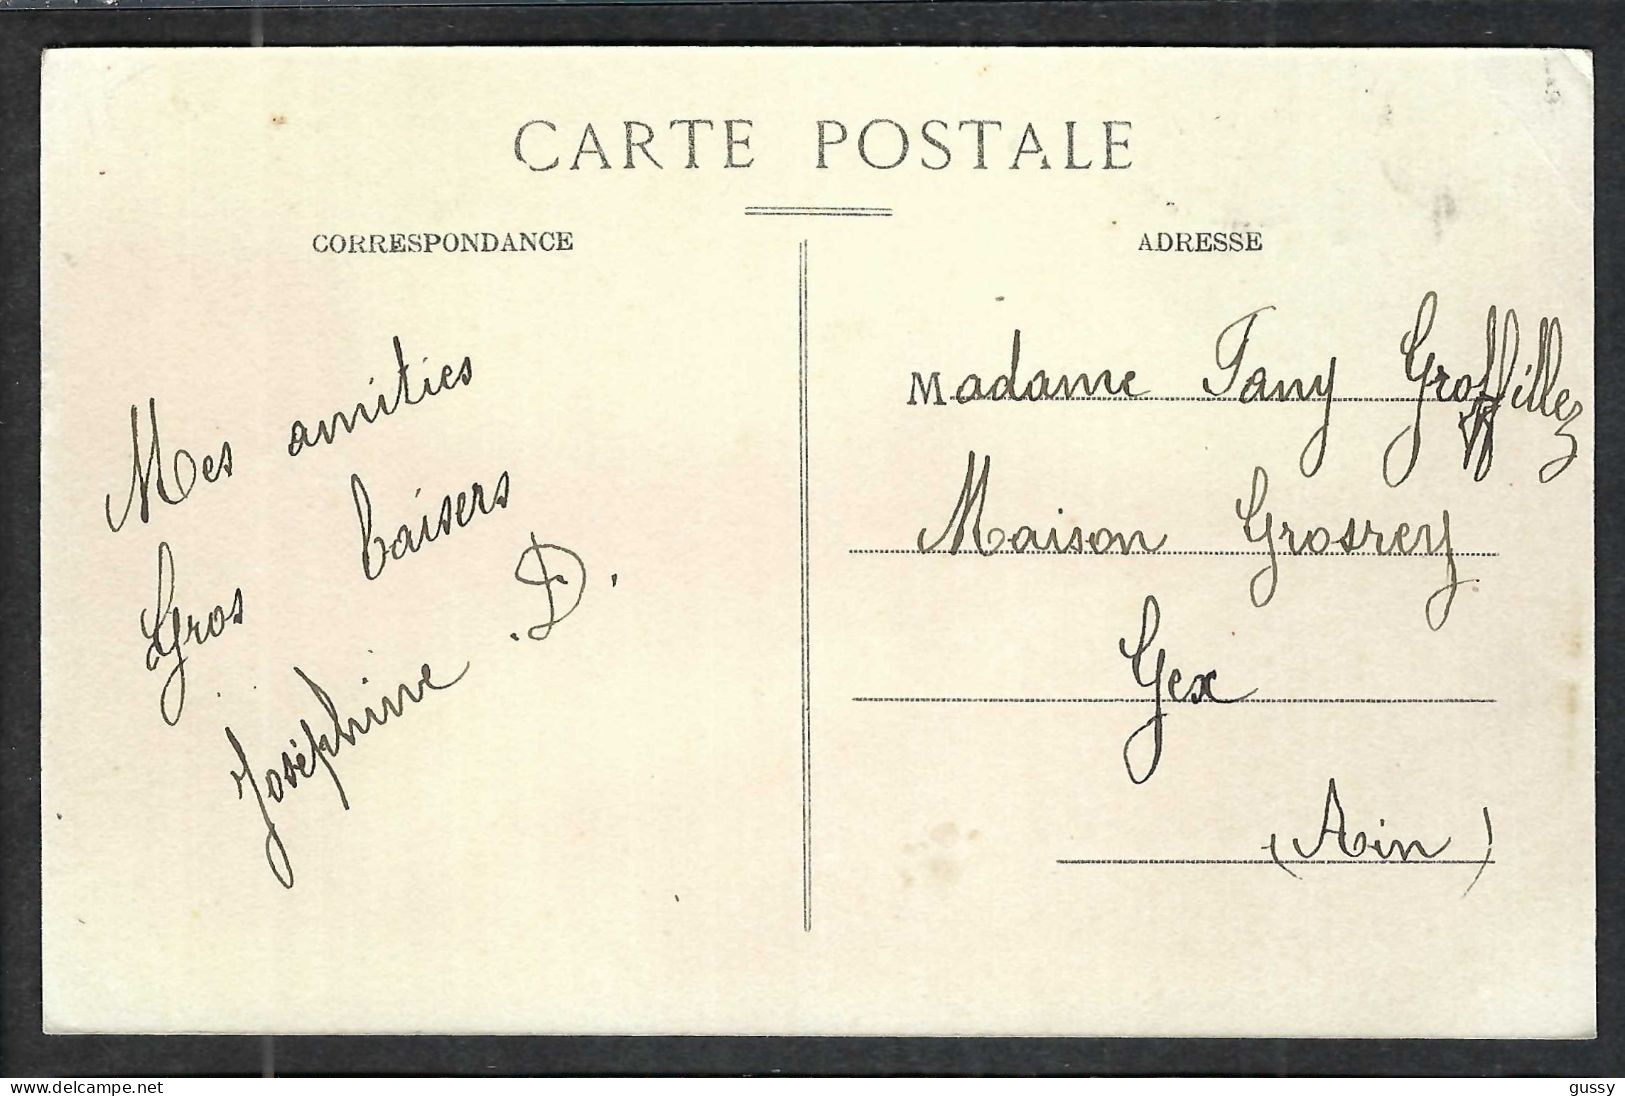 CARTE POSTALE
CORRESPONDANCE
Mes amities
Gros baisers
Joséphine .D.
ADRESSE
Madame Fany Groffillez
Maison Grosrey
Gex
(Ain)
www.delcampe.net
gussy